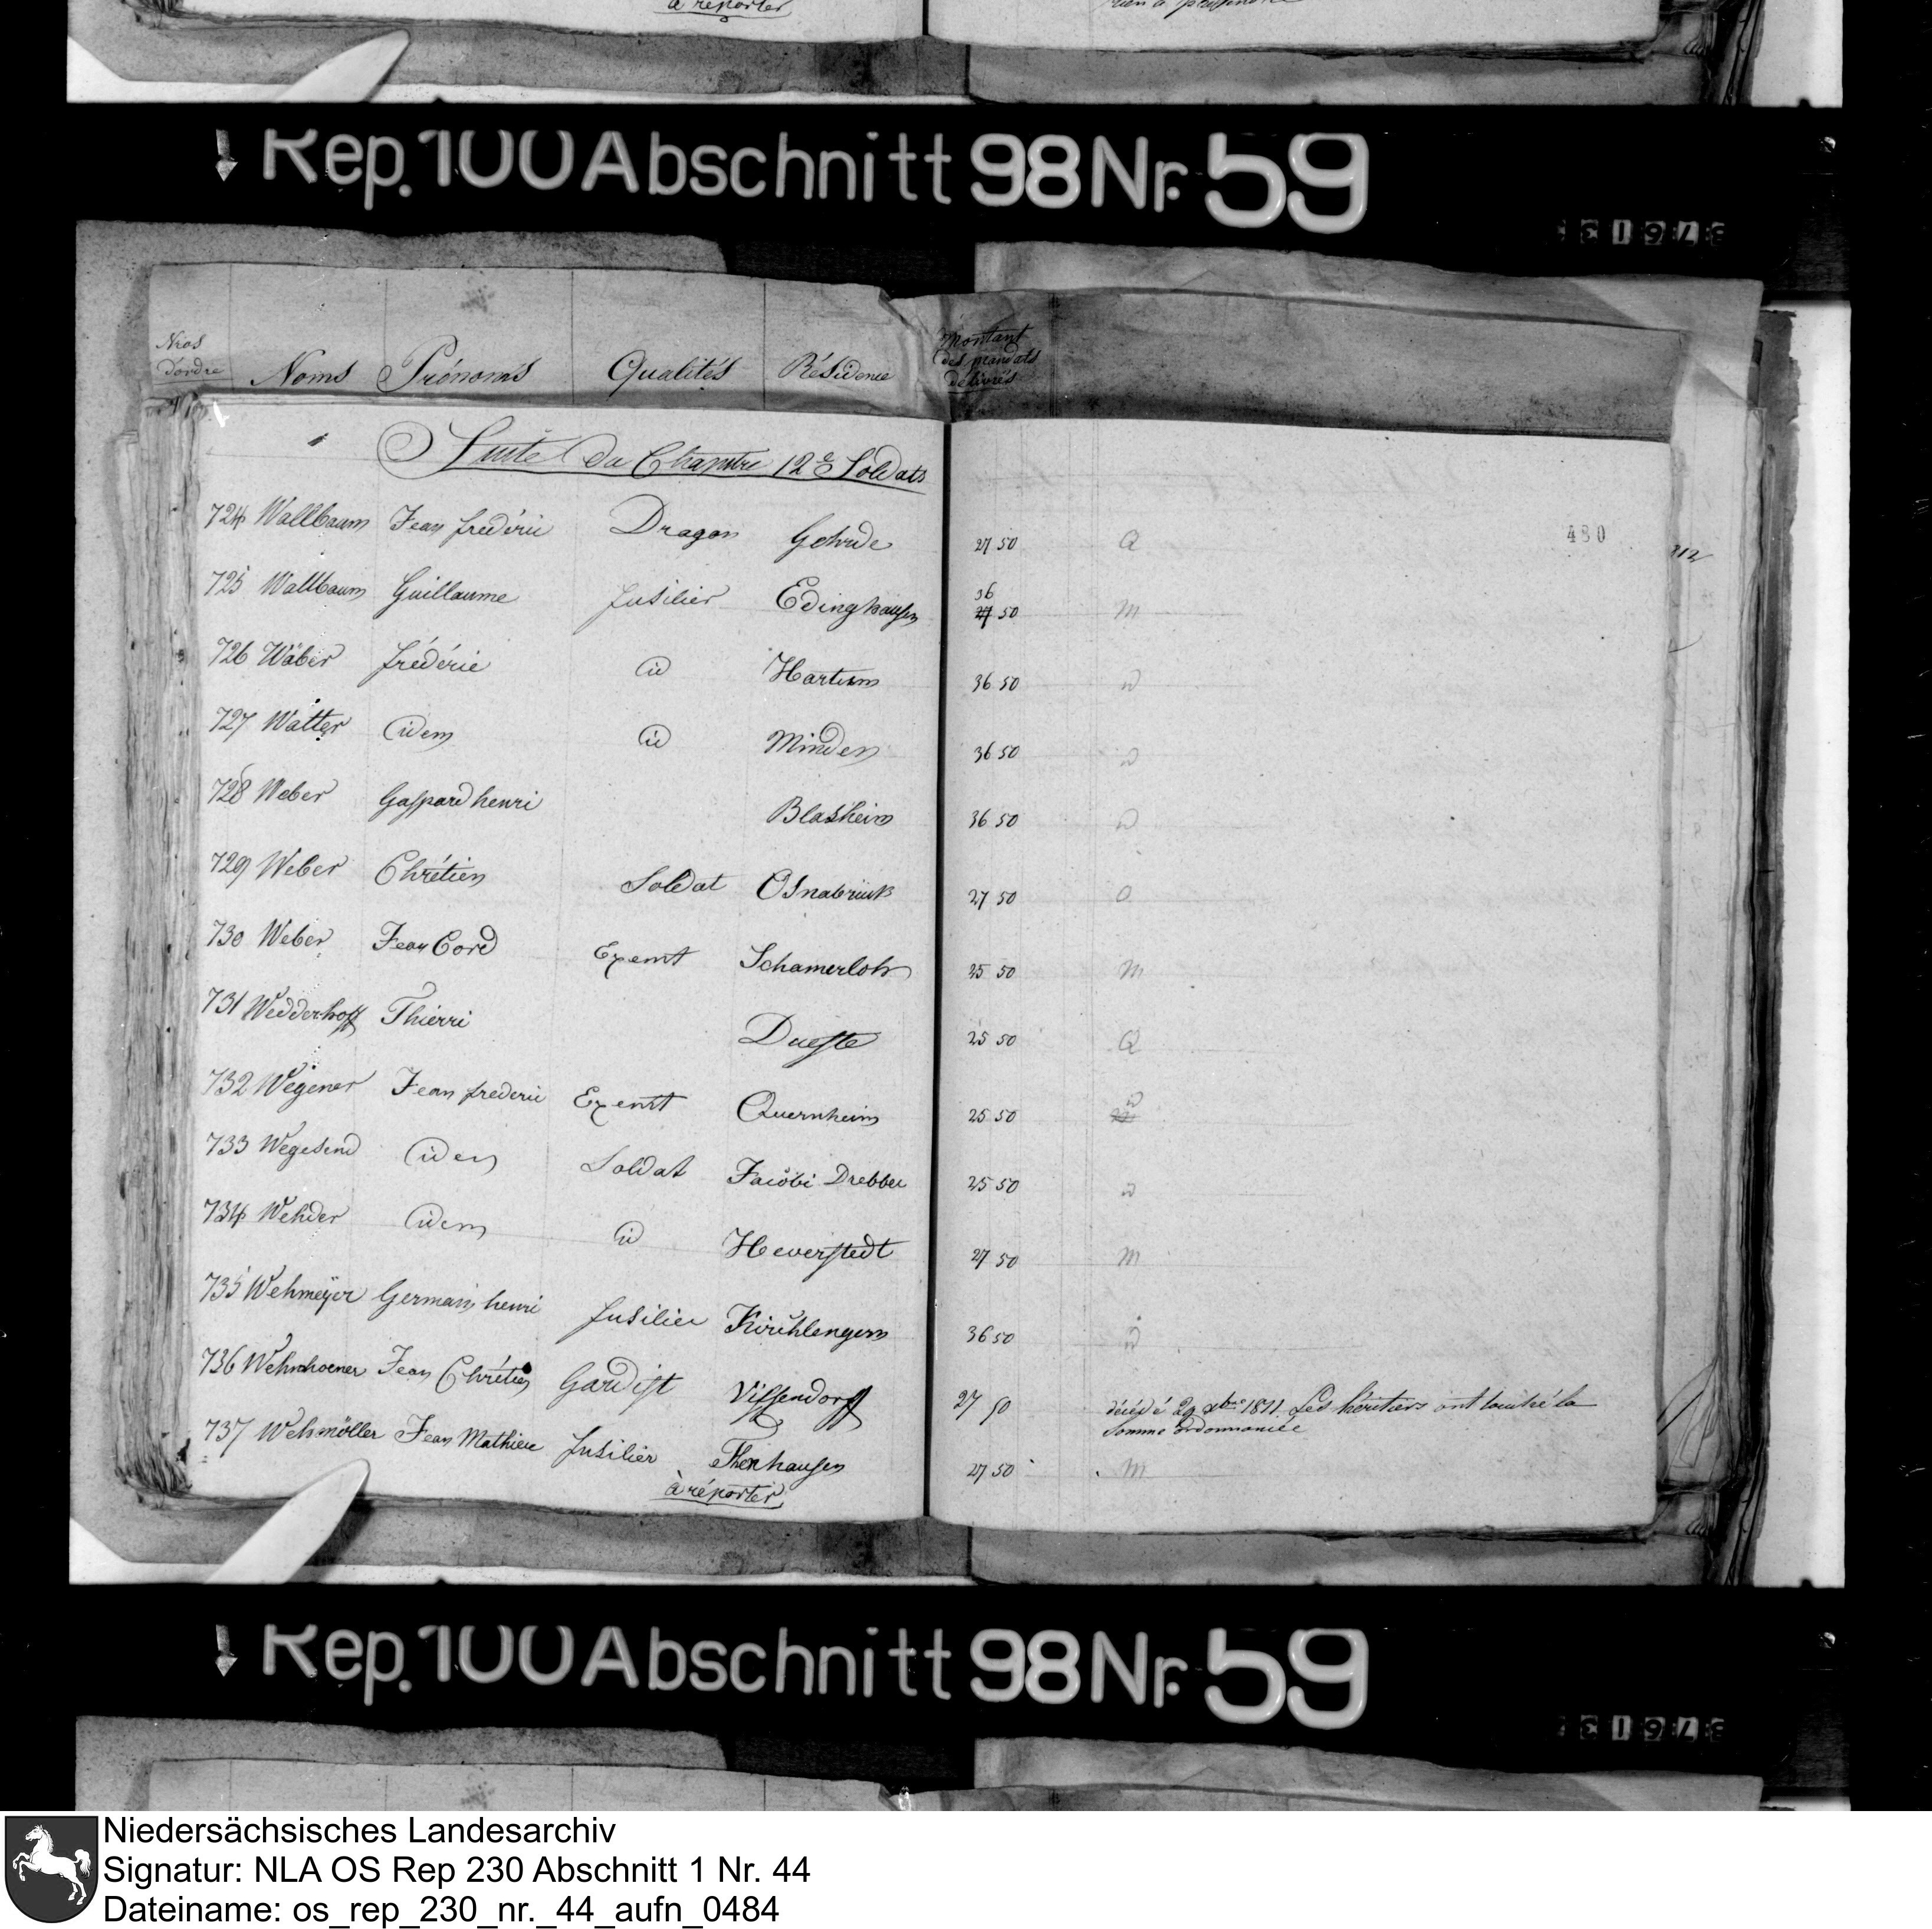 à réporter
Rep. 100 Abschnitt 98 Nr. 59
Nros d'ordre Noms Prénoms Qualités Résidence Montant des mandats délivrés
Suite du Chapitre 12e Soldats
480
312
724 Wallbaum Jean frédéric Dragon Gehrde 27 50 Q
725 Wallbaum Guillaume fusilier Edinghausen 36 27 50 M
726 Wäber frédéric id Hartum 36 50
727 Watter idem id Minden 36 50
728 Weber Gaspard henri Blasheim 36 50
729 Weber Chrétien Soldat Osnabrück 27 50 O
730 Weber Jean Cord Exemt Schamerloh 25 50 M
731 Wedderhoff Thierri Dueste 25 50 Q
732 Wegener Jean frederic Exemt Quernheim 25 50
733 Wegesend idem Soldat Jacobi Drebber 25 50
734 Wehder idem id Heverstedt 27 50 M
735 Wehmeÿer Germain henri fusilier Kirchlengern 36 50
736 Jean Chrétien Gardist Vissendorff 27 50 décédé 29 xbre 1811 Les héritiers ont touché la
somme ordonnancée
737 Wehmöller Jean Mathieu fusilier hausen 27 50 M
à réporter
Rep. 100 Abschnitt 98 Nr. 59
Niedersächsisches Landesarchiv
Signatur: NLA OS Rep 230 Abschnitt 1 Nr. 44
Dateiname: os_rep_230_nr._44_aufn_0484